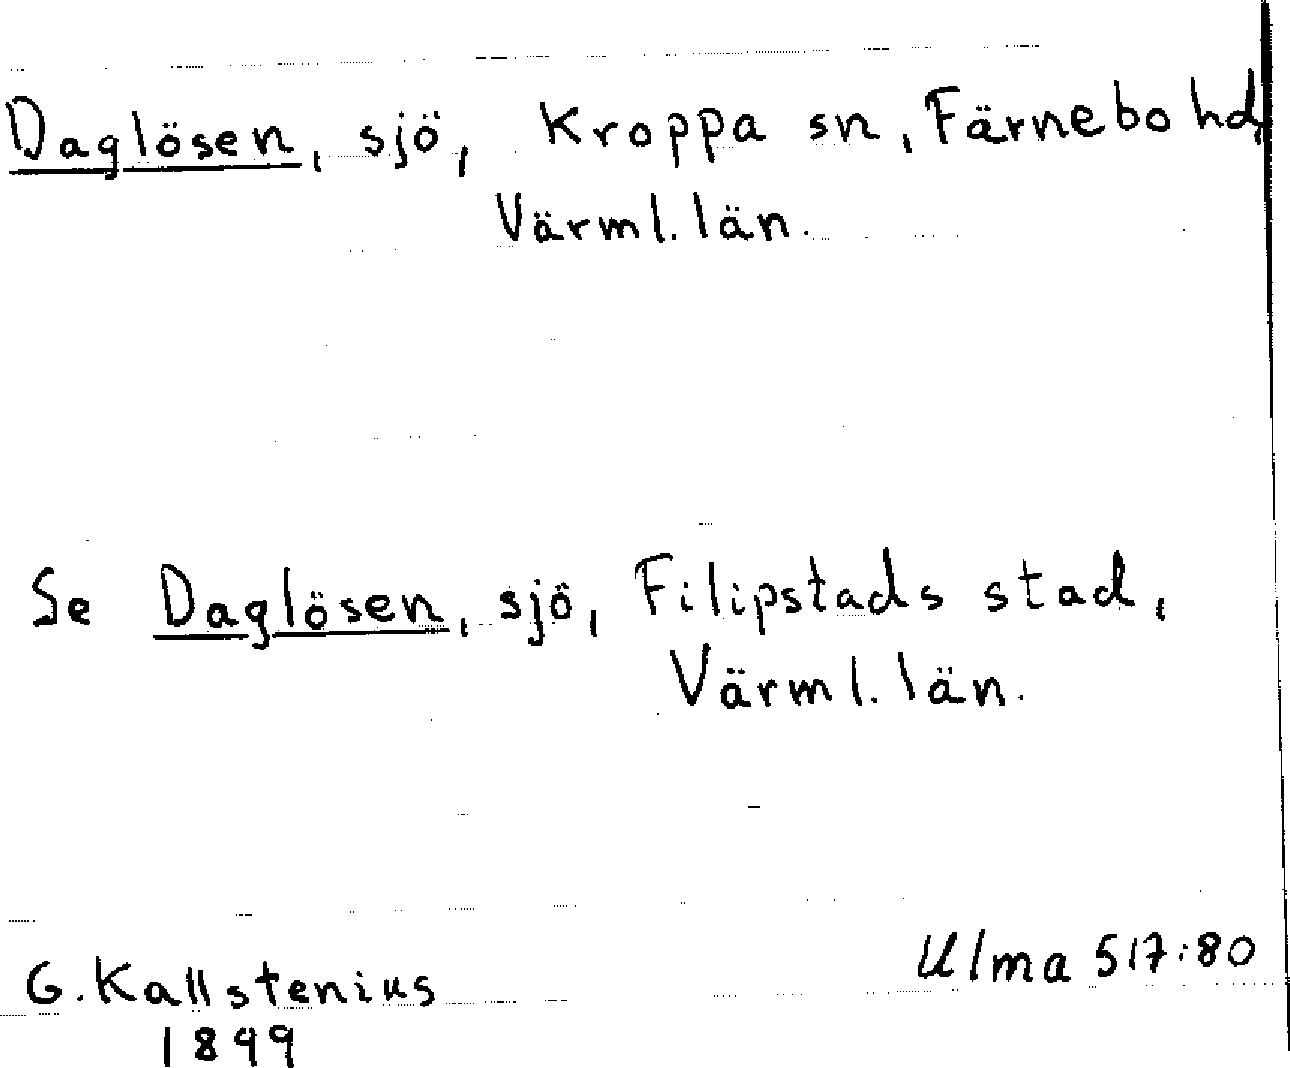 Daglösen, sjö, Kroppa sn, Färnebo hd,
Värml. län.
Se Daglösen, sjö, Filipstads stad,
Värml. län.
G. Kallstenius
1899
Ulma 517:80